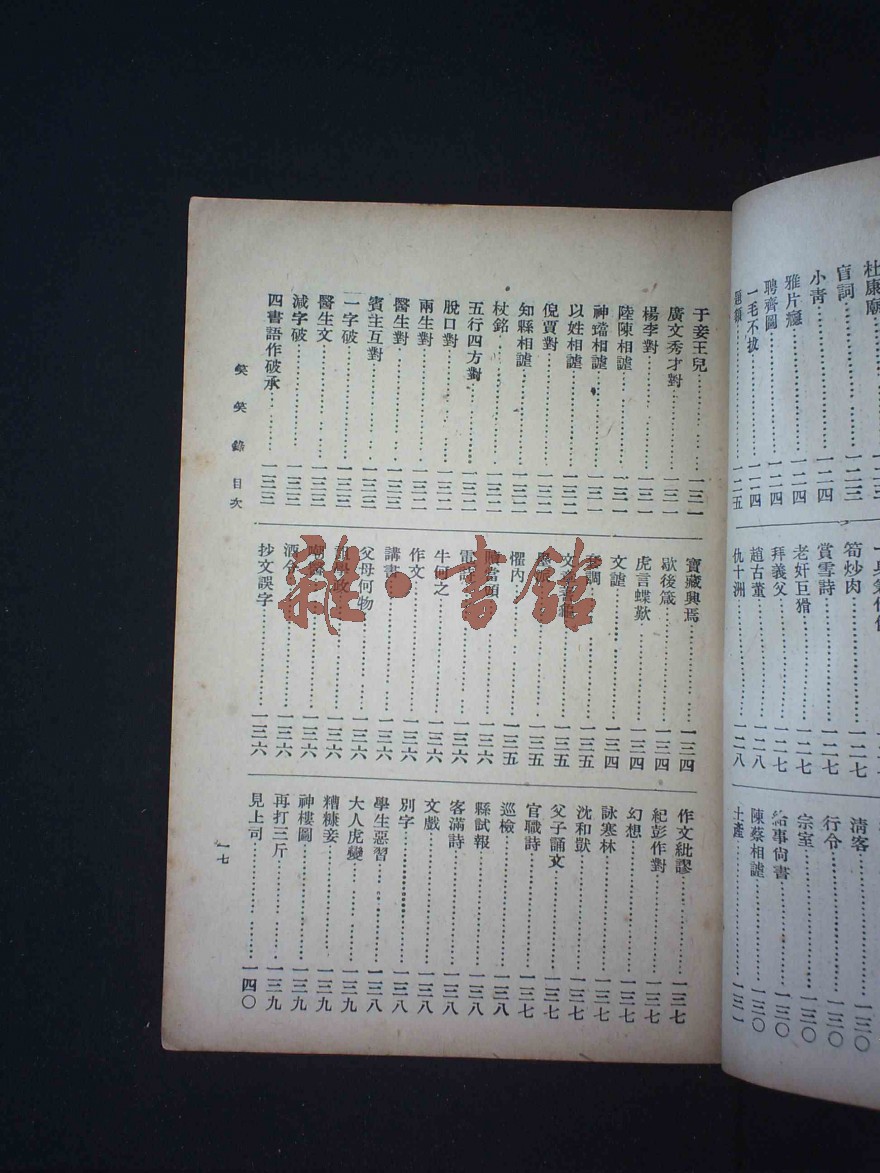 杜康廟
官詞……一二三
小青……一二四
雅片癮……一二四
聘齊圖……一二四
一毛不拔……一二四
題額……一二五
筍炒肉……一二七
賞雪詩……一二七
老奸巨猾……一二七
拜義父……一二七
趙古董……一二八
仇十洲……一二八
清客……一三〇
行令……一三〇
宗室……一三〇
給事尙書……一三〇
陳蔡相謔……一三〇
土產……一三一
于妾王兒……一三一
廣文秀才對……一三一
楊李對……一三一
陸陳相謔……一三一
神壇相謔……一三一
以姓相謔……一三二
倪賈對……一三二
知縣相謔……一三二
杖銘……一三二
五行四方對……一三二
脫口對……一三二
兩生對……一三二
醫生對……一三三
賓主互對……一三三
一字破……一三三
醫生文……一三三
減字破……一三三
四書語作破承……一三三
寶藏興焉……一三四
歇後箴……一三四
虎言蝶歎……一三四
文謔……一三四
套調……一三五
一三五
一三五
懼內……一三五
當頭……一三六
一三六
牛何之……一三六
作文……一三六
講書……一三六
父母何物……一三六
一三六
嘲醫……一三六
酒令……一三六
抄文誤字……一三六
作文紕謬……一三七
紀彭作對……一三七
幻想……一三七
詠寒林……一三七
沈和獃……一三七
父子誦文……一三七
官職詩……一三七
巡檢……一三八
縣試報……一三八
客滿詩……一三八
文戲……一三八
別字……一三八
學生惡習……一三八
大人虎變……一三九
糟糠妾……一三九
神樓圖……一三九
再打三斤……一三九
見上司……一四〇
笑笑錄 目次
一七
雜·書館